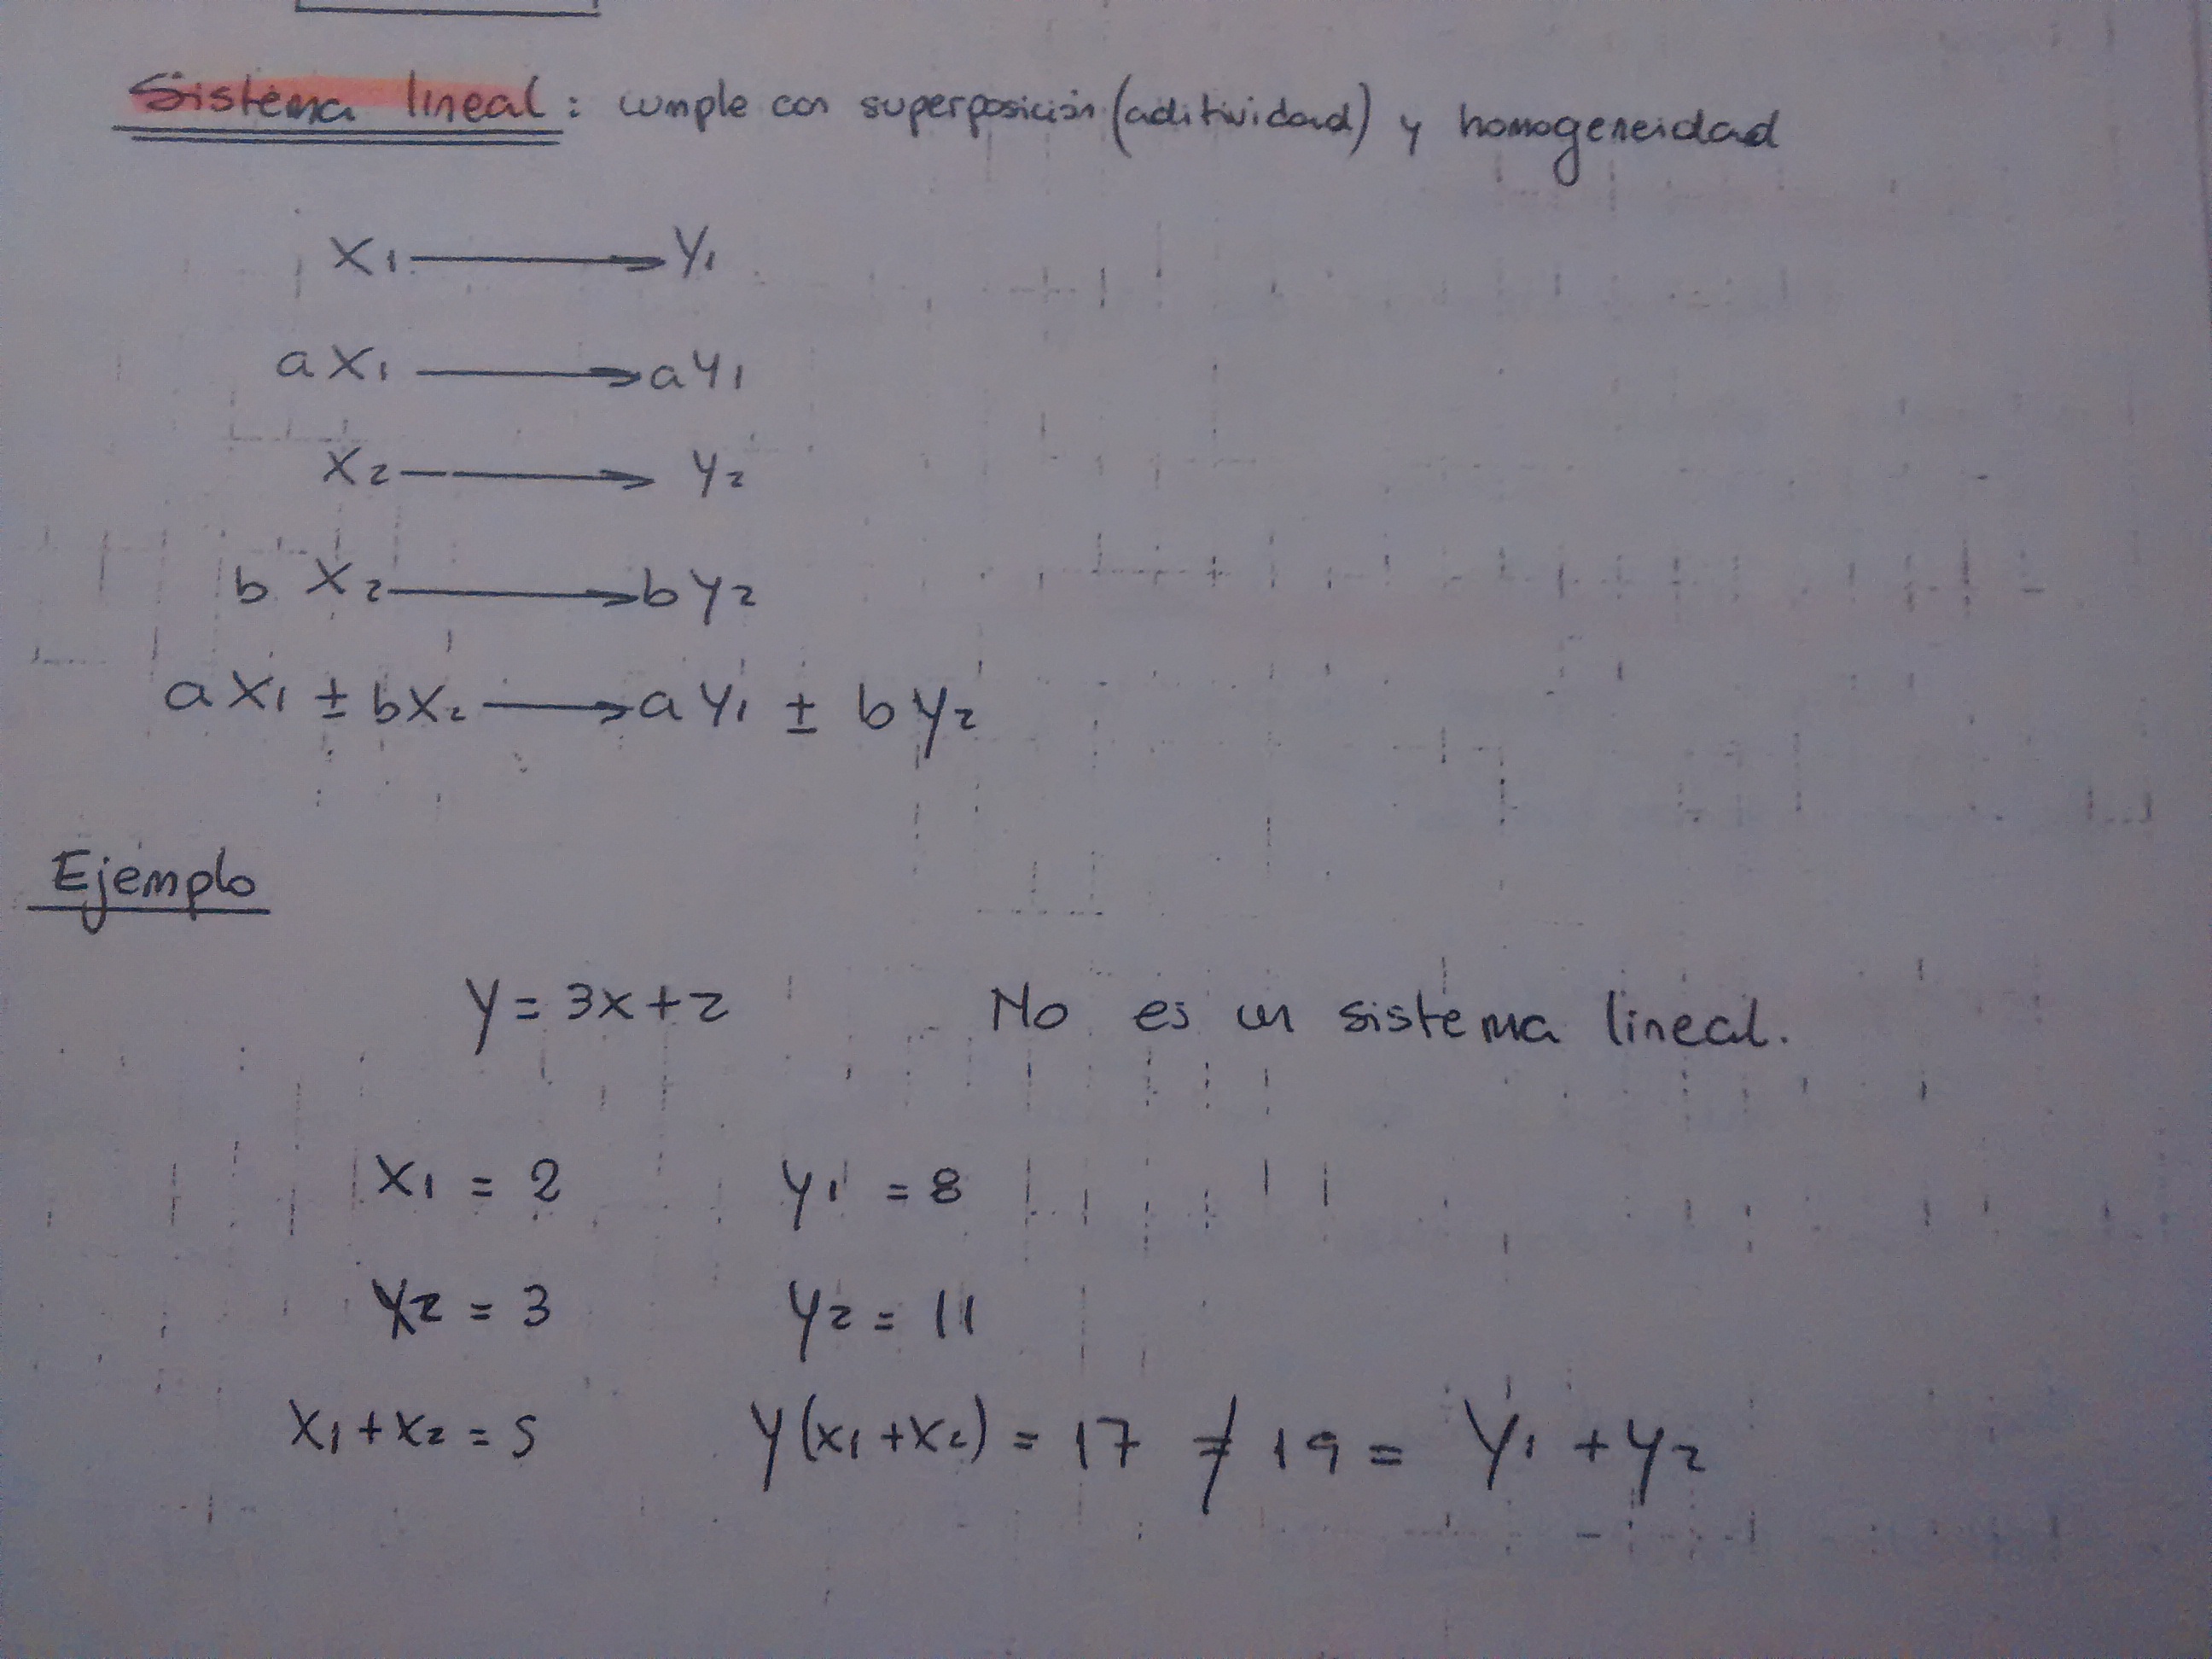 Sistema lineal: cumple con superposición (aditividad) y homogeneidad
X1 → Y1
a X1 → a Y1
X2 → Y2
b X2 → b Y2
a X1 ± b X2 → a Y1 ± b Y2
Ejemplo
y = 3x + 2 No es un sistema lineal.
X1 = 2 y1 = 8
X2 = 3 y2 = 11
X1 + X2 = 5 y(x1 + x2) = 17 ≠ 19 = Y1 + y2